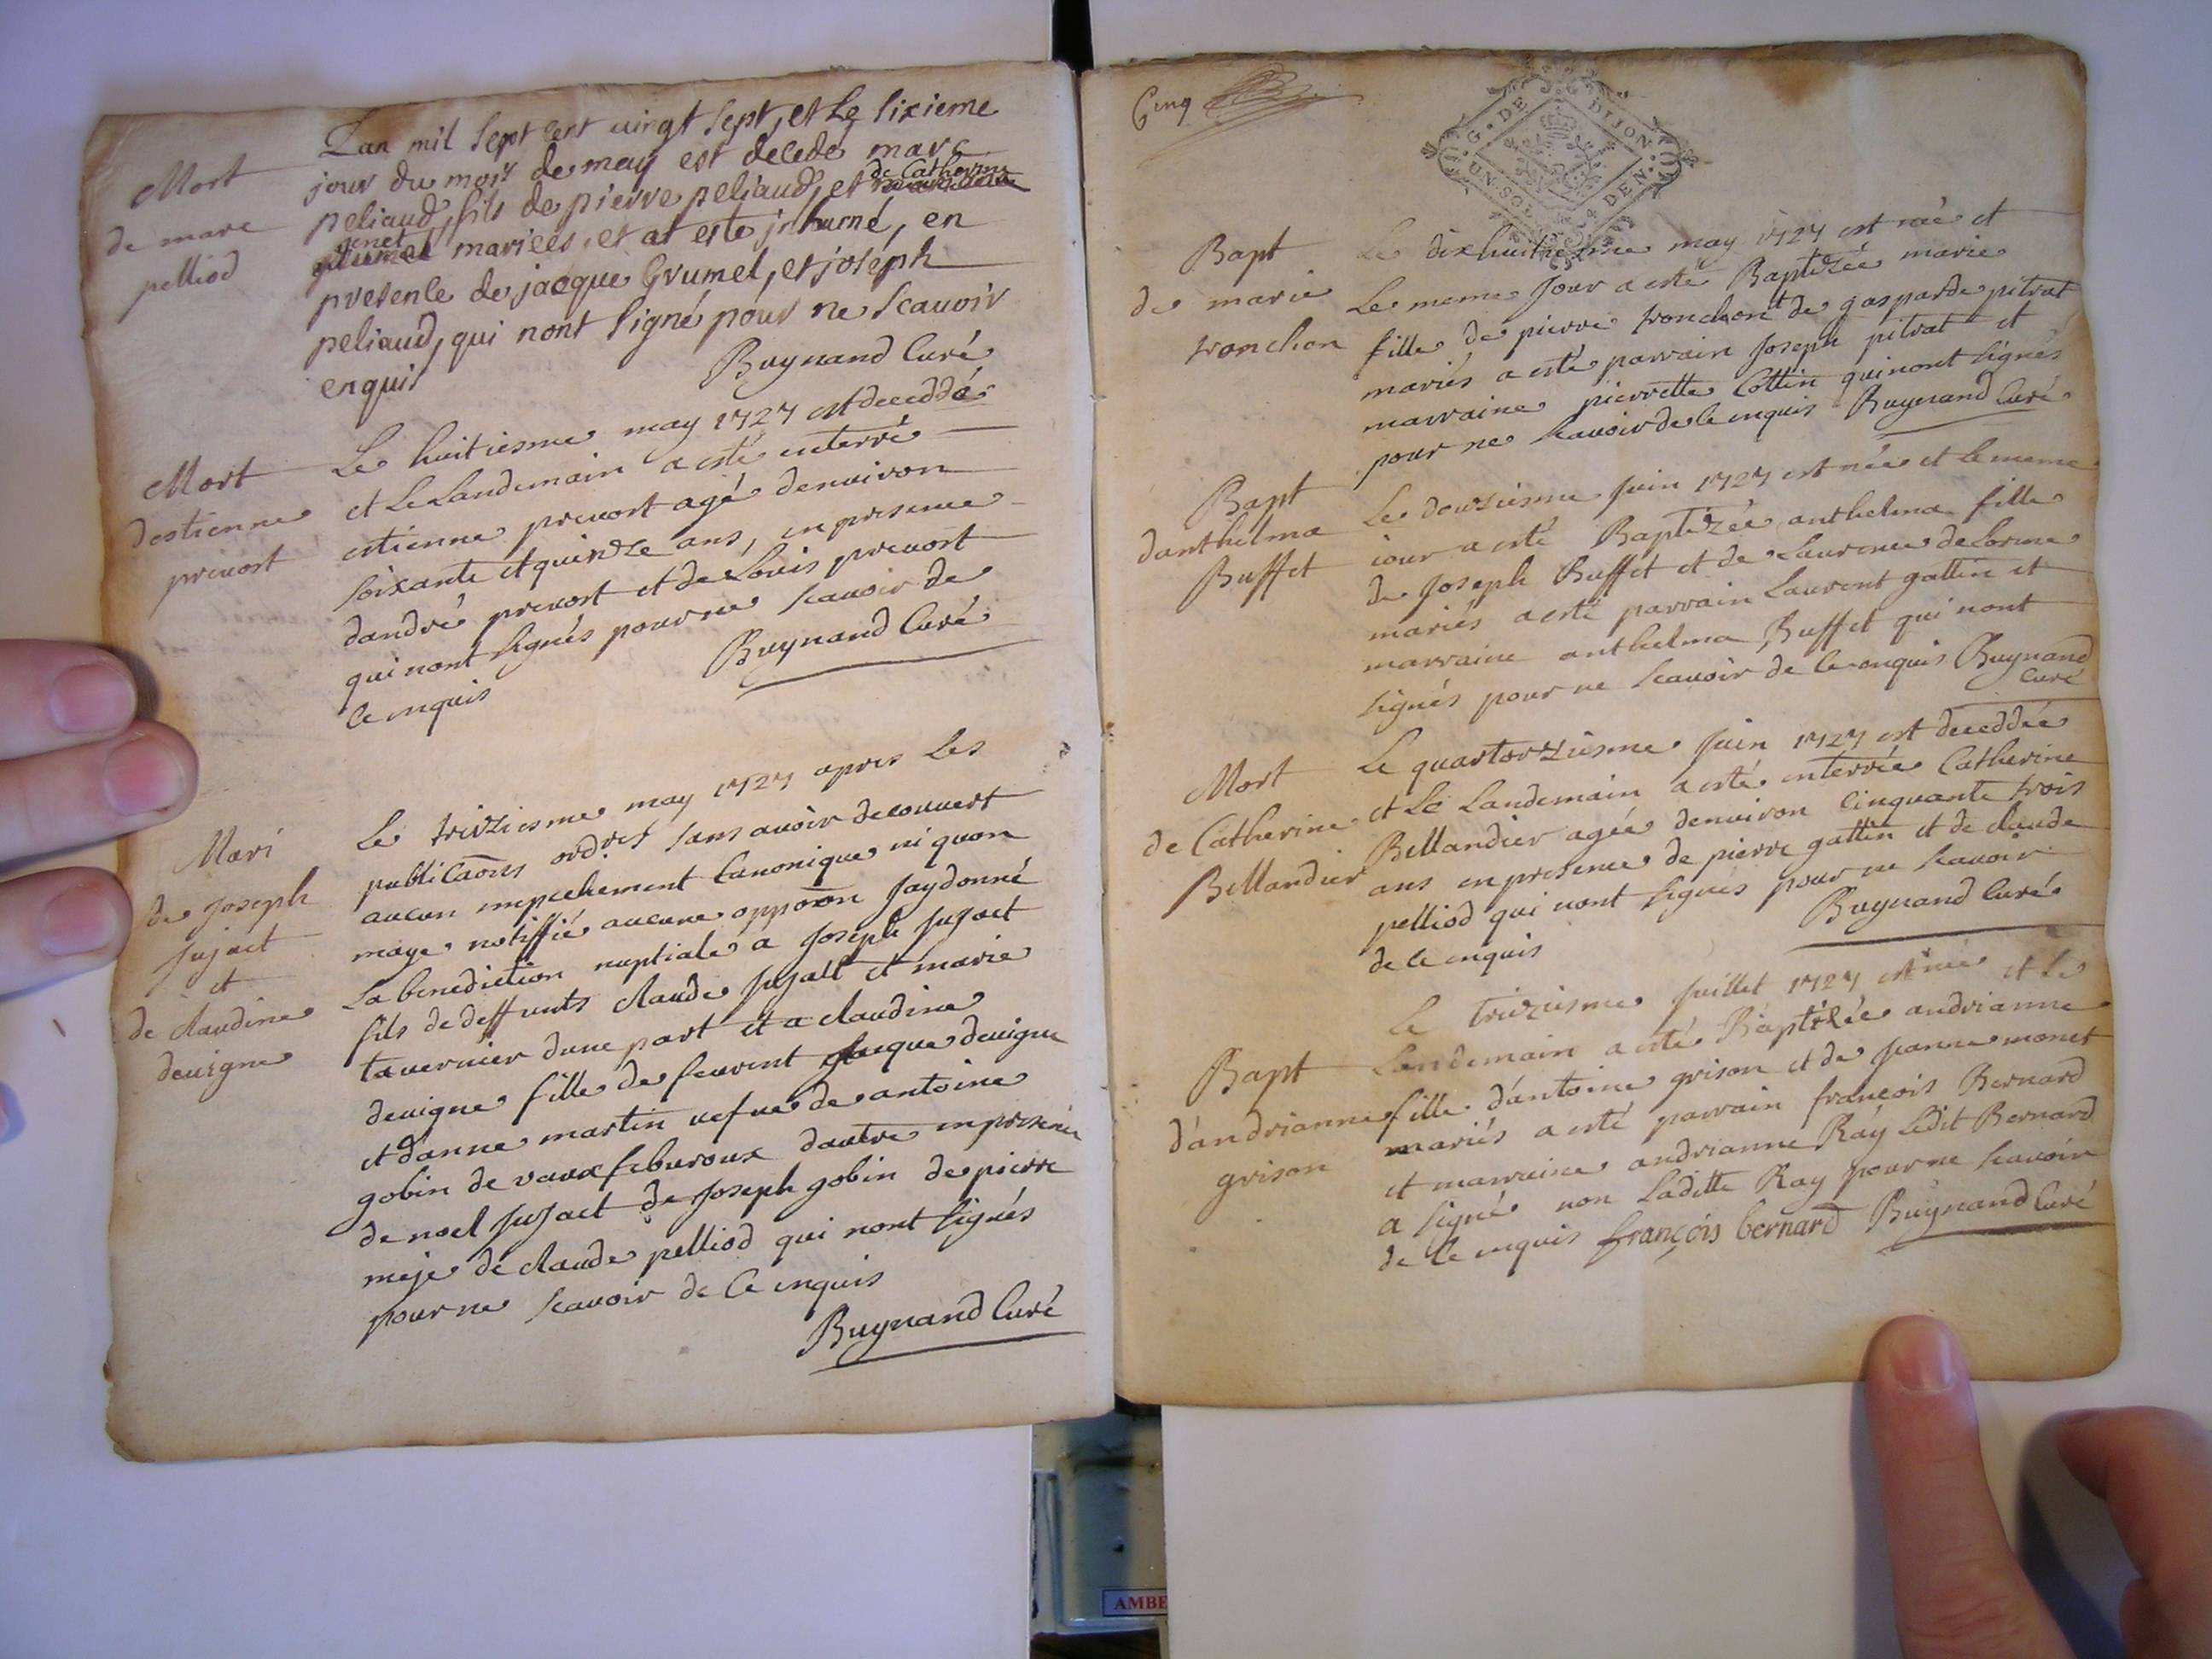 Mort
de marc
pelliod
Lan mil sept cent vingt sept, et Le sixieme
jour du mois de may est decedé marc
peliaud, fils de pierre peliaud, et de Catherine
genet mariees, et at esté jnhumé, en
presence de jacque Grumel, et joseph
peliaud, qui nont signé pour ne scauoir
enquis
Buynand Curé
Mort
destienne
preuost
Le huitiesme may 1727 est deceddé
et Le Landemain a esté enterré
estienne preuost agé denuiron
soixante et quinze ans, en presence
dandré preuost et de Louis preuost
qui nont signés pour ne scauoir de
ce enquis
Buynand Curé
Mari
de Joseph
Jujact
et
de claudine
deuigne
Le treiziesme may 1727 apres Les
publicaons ordres sans auoir decouuert
aucun mepechement Canonique ni quon
maye notiffié aucune opposon Jay donné
La benediction nuptiale a Joseph Jujact
fils de deffunts claude Jujatt et marie
tauernier dune part et a claudine
deuigne fille de feurent jacque deuigne
et d'anne martin vefue de antoine
gobin de vaux febouroux dautre en presence
de noel Jujact de Joseph gobin de pierre
meje de claude pelliod qui nont signés
pour ne scauoir de Ce enquis
Buynand Curé
Cinq
G. DE DIJON
UN SOL
DEN.
Bapt
de marie
tronchon
Le dixhuitiesme may 1727 est née et
Le meme Jour a esté Baptizée marie
fille de pierre tronchon et de gasparde pitrat
mariés a esté parrain Joseph pitrat et
marraine pierrette Cottin qui nont signés
pour ne scauoir de Ce enquis Buynand Curé
Bapt
danthelma
Buffet
Le douziesme Juin 1727 est née et Le meme
iour a esté Baptizée anthelma fille
de Joseph Buffet et de Laurence deLorme
mariés a esté parrain Laurent gattin et
marraine anthelma Buffet qui nont
signés pour ne scauoir de Ce enquis Buynand
Curé
Mort
de Catherine
Billandier
Le quatorziesme Juin 1727 est deceddée
et Le Landemain a esté enterrée Catherine
Billandier agée denuiron Cinquante trois
ans en presence de pierre gattin et de claude
pelliod qui nont signés pour ne scauoir
de Ce enquis
Buynand Curé
Bapt
d'andrianne
grison
Le treiziesme Juillet 1727 est née et Le
Landemain a esté Baptizée andrianne
fille d'antoine grison et de Jeanne monet
mariés a esté parrain francois Bernard
et marraine andrianne Ray Ledit Bernard
a signé non Laditte Ray pour ne scauoir
de Ce enquis françois bernard Buynand Curé
AMBE